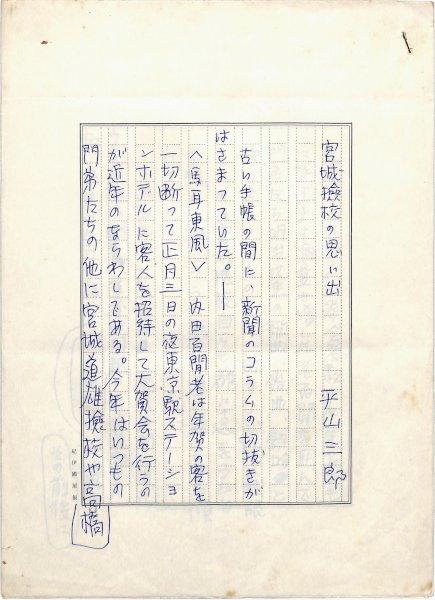 宮城撿校の思い出
平山三郎
古い手帳の間に、新聞のコラムの切抜きが
はさまっていた。――
〈馬耳東風〉 内田百閒老は年賀の客を
一切断って正月三日の夜東京駅ステーショ
ンホテルに客人を招待して大賀会を行うの
が近年のならわしである。今年はいつもの
門弟たちの他に宮城道雄撿校や高橋
紀伊國屋製